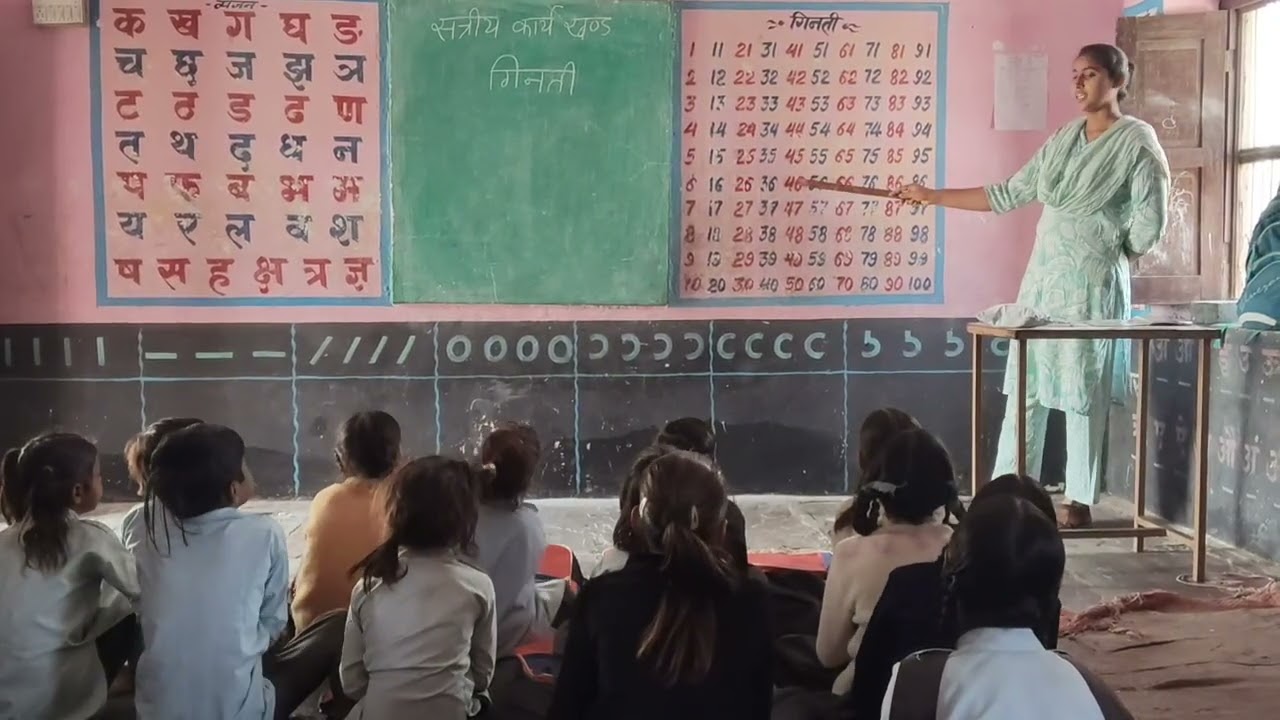 व्यंजन
क ख ग घ ङ
च छ ज झ ञ
ट ठ ड ढ ण
त थ द ध न
प फ ब भ म
य र ल व श
ष स ह क्ष त्र ज्ञ
सत्रीय कार्य खण्ड
गिनती
गिनती
1 11 21 31 41 51 61 71 81 91
2 12 22 32 42 52 62 72 82 92
3 13 23 33 43 53 63 73 83 93
4 14 24 34 44 54 64 74 84 94
5 15 25 35 45 55 65 75 85 95
6 16 26 36 46 56 66 76 86 96
7 17 27 37 47 57 67 77 87 97
8 18 28 38 48 58 68 78 88 98
9 19 29 39 49 59 69 79 89 99
10 20 30 40 50 60 70 80 90 100